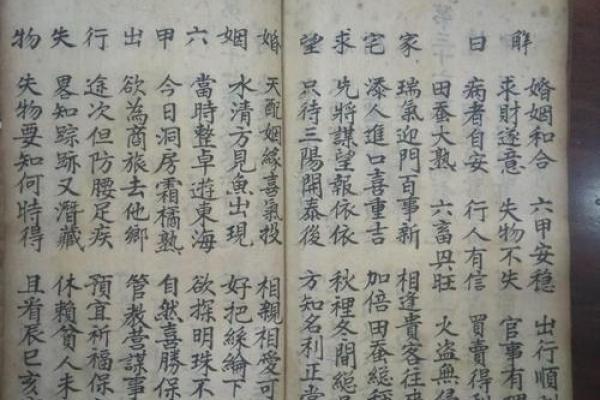 婚姻和合 六甲安穩 出行順
解 求財遂意 失物不失 官事有
曰 病者自安 行人有信 買賣得
田蚕大熟 六畜興旺 火盜無
家 瑞氣迎門百事新 相逢貴客往
宅 添人進口喜重吉 加倍田蚕總
求 先將謀望報依依 秋裡冬間總
望 只待三陽開泰後 方知名利正當
婚 天配姻緣喜氣投 相親相愛可
姻 水清方見魚出現 好把絲綸下
六 當時整卓遊東海 欲探明珠不
甲 今日洞房霜橘熟 自然喜勝保
出 欲為商旅去他鄉 管教營謀事
行 途次但防腰足疾 預宜祈福保
失 畧知踪跡又潛藏 休賴貧人未
物 失物要知何時得 且看辰巳亥